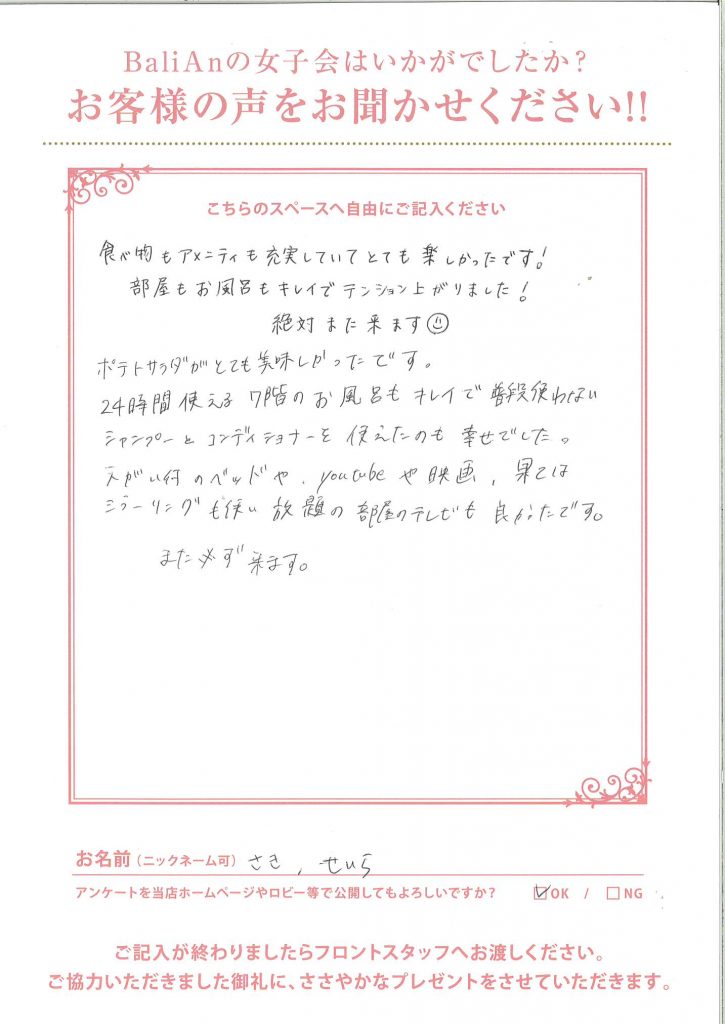 BaliAnの女子会はいかがでしたか?
お客様の声をお聞かせください!!
こちらのスペースへ自由にご記入ください
食べ物もアメニティも充実していてとても楽しかったです!
部屋もお風呂もキレイでテンション上がりました!
絶対また来ます
ポテトサラダがとても美味しかったです。
24時間使える7階のお風呂もキレイで普段使わない
シャンプーとコンディショナーを使えたのも幸せでした。
天がい付のベッドや、youtubeや映画、果ては
ミラーリングも使い放題の部屋のテレビも良かたです。
また必ず来ます。
お名前(ニックネーム可) さき、せいら
アンケートを当店ホームページやロビー等で公開してもよろしいですか? ☑OK / □NG
ご記入が終わりましたらフロントスタッフへお渡しください。
ご協力いただきました御礼に、ささやかなプレゼントをさせていただきます。